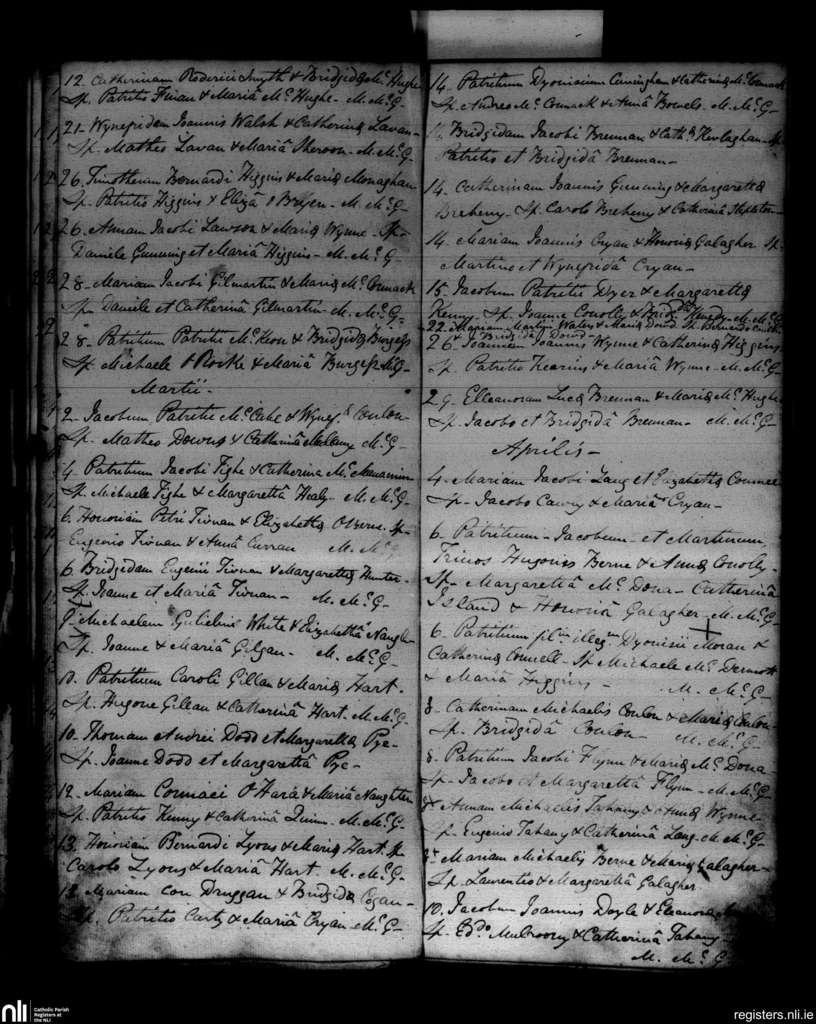 12. Catherinam Roderici Smyth & Bridgidæ Mc Hughe
Sp. Patritio Finan & Mariâ Mc Hughe - M. Mc G-
21- Wynefridam Joannis Walsh & Catherinæ Lavan-
Sp. Matheo Lavan & Mariâ - M. Mc G-
26. Timotheum Bernardi Higgins & Mariæ Monaghan
Sp. Patritio Higgins & Elizâ O Bryen - M. Mc G-
26. Annam Jacobi Lawson & Mariæ Wynne - Sp-
Daniele Gunning et Mariâ Higgins - M. Mc G-
28- Mariam Jacobi Gilmartin & Mariæ Mc Cormack
Sp- Daniele et Catherinâ Gilmartin - M. Mc G-
28- Patritium Patritii Mc Keon & Bridgidæ Burgess
Sp. Michaele O Rorke & Mariâ Burgess McG-
Martii-
2- Jacobum Patritii Mc Cabe & Wynef. Conlon-
Sp- Matheo Downs & Catherinâ Mc G-
4. Patritium Jacobi Tighe & Catherinæ Mc Manamin
Sp. Michaele Tighe & Margarettâ Healy - M. Mc G-
6. Honoriam Petri Tivnan & Elizabettæ O Berne. Sp-
Eugenio Tivnan & Annâ Curran M. Mc G
6 Bridgidam Eugenii Tivnan & Margarettæ Hunter-
Sp. Joanne et Mariâ Tivnan - M. Mc G-
Michaelem Gulielmi White & Elizabettæ Naughten
Sp. Joanne & Mariâ Gilgan - M. Mc G-
10. Patritium Caroli Gillan & Mariæ Hart.
Sp. Hugone Gillan & Catherinâ Hart. M. Mc G-
10. Thomam Andrei Dodd et Margarettæ Pye-
Sp. Joanne Dodd et Margarettâ Pye-
12. Mariam Cormaci O'Hara & Mariæ Naughten
Sp. Patritio Kenny & Catherinâ Quinn - M. Mc G-
13. Honoriam Bernardi Lyons & Mariæ Hart. Sp
Carolo Lyons & Mariâ Hart. M. Mc G-
13. Mariam Con Druggan & Bridgidæ Egan-
Sp. Patritio Carty & Mariâ Cryan - Mc G-
14. Patritium Dyonisii Cuningham & Catherinæ Mc Cormack
Sp Andreo Mc Cormack & Annâ Bowels. M. Mc G-
Bridgidam Jacobi Brennan & Cath. - Sp
Patritio et Bridgidâ Brennan-
14. Catherinam Joannis Gunning & Margarettæ
Breheny. Sp. Carolo Breheny & Catherinâ
14. Mariam Joannis Cryan & Honoriæ Galagher Sp
Martino et Wynefridâ Cryan-
15. Jacobum Patritii Dyer & Margarettæ
Kenny. Sp. Joanne Conolly & Brid. Kenedy - M. Mc G
22. Mariam Martin & Mariæ Dowd Sp Bernardo
& Bridgidâ Dowd-
26. Joannem Joannis Wynne & Catherinæ Higgins
Sp. Patritio Kearins & Mariâ Wynne - M. Mc G-
29. Elleanoram Lucæ Brennan & Mariæ Mc Hughe
Sp. Jacobo et Bridgidâ Brennan - M. Mc G-
Aprilis-
4. Mariam Jacobi Lang et Elizabettæ Connell
Sp- Jacobo & Mariâ Cryan-
6- Patritium - Jacobum - et Martinum
Trinos Hugonis Berne & Annæ Conolly-
Sp- Margarettâ Mc Dona - Catherinâ
Island & Honoriâ Galagher - M. Mc G-
6- Patritium fil.m illeg.m Dyonisii Moran &
Catherinæ Connell - Sp Michaele Mc Dermott
& Mariâ Higgins - M. Mc G-
8- Catherinam Michaelis Conlon & Mariæ Conlon-
Sp. Bridgidâ Conlon - M. Mc G-
8. Patritium Jacobi Flynn & Mariæ Mc Dona-
Sp- Jacobo & Margarettâ Flynn - M. Mc G
8 Annam Michaelis Tahany & Annæ Wynne-
Sp. Eugenio Tahany & Catherinâ Lang. M. Mc G-
8. Mariam Michaelis Berne & Mariæ Galagher-
Sp. Laurentio & Margarettâ Galagher
10. Jacobum Joannis Doyle & Eleanoræ
Sp. Edo. Mulroony & Catherinâ Tahany-
M. Mc G
nli
Catholic Parish
Registers at
the NLI
registers.nli.ie